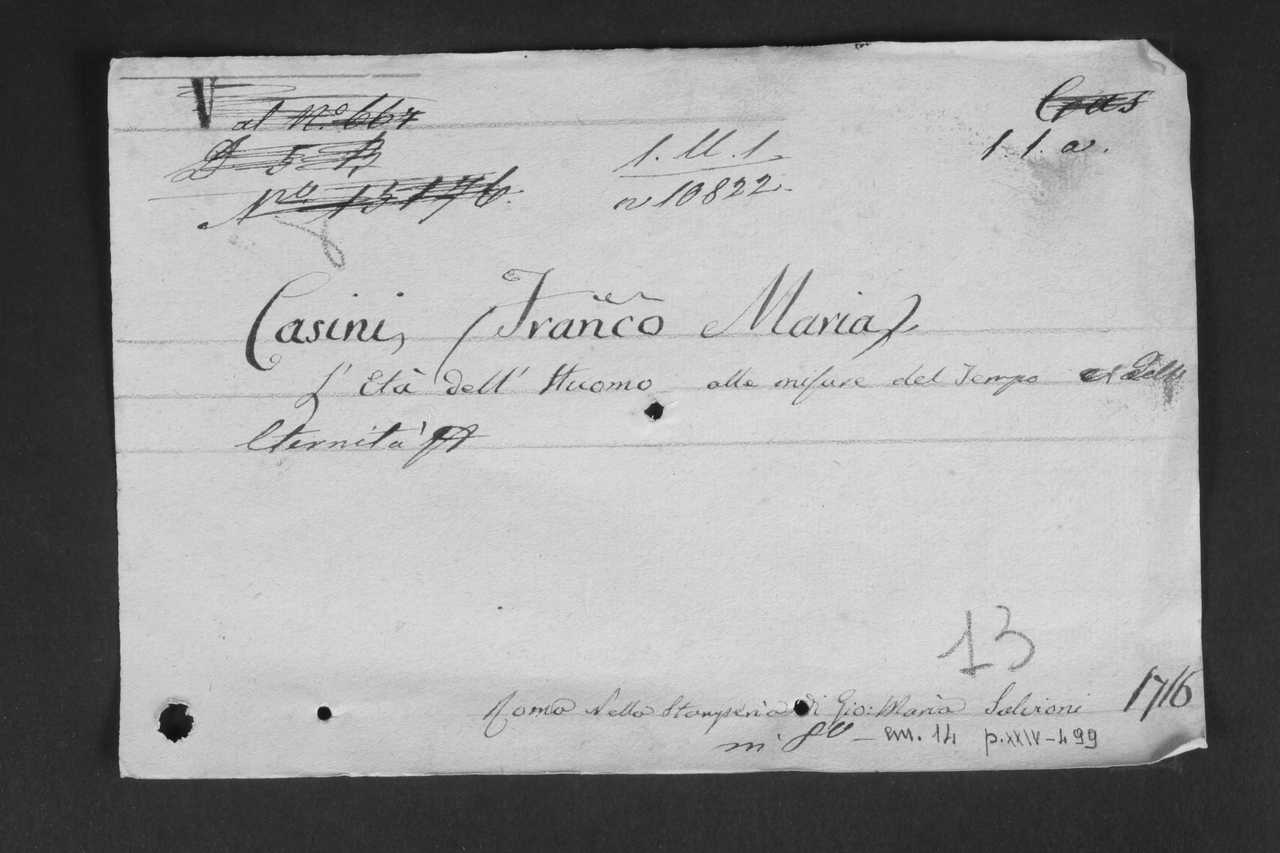 V
al N.o 667
D 5 B
N.ro 13176.
1. M. 1
n 10822.
1. 1. a.
Casini, Frañco Maria
L' Età dell' Huomo alle misure del Tempo e dell
Eternità
13
Roma Nella Stamperia di Gio: Maria Salvioni 1716
in 8º – cm. 14 p. XXIV–499